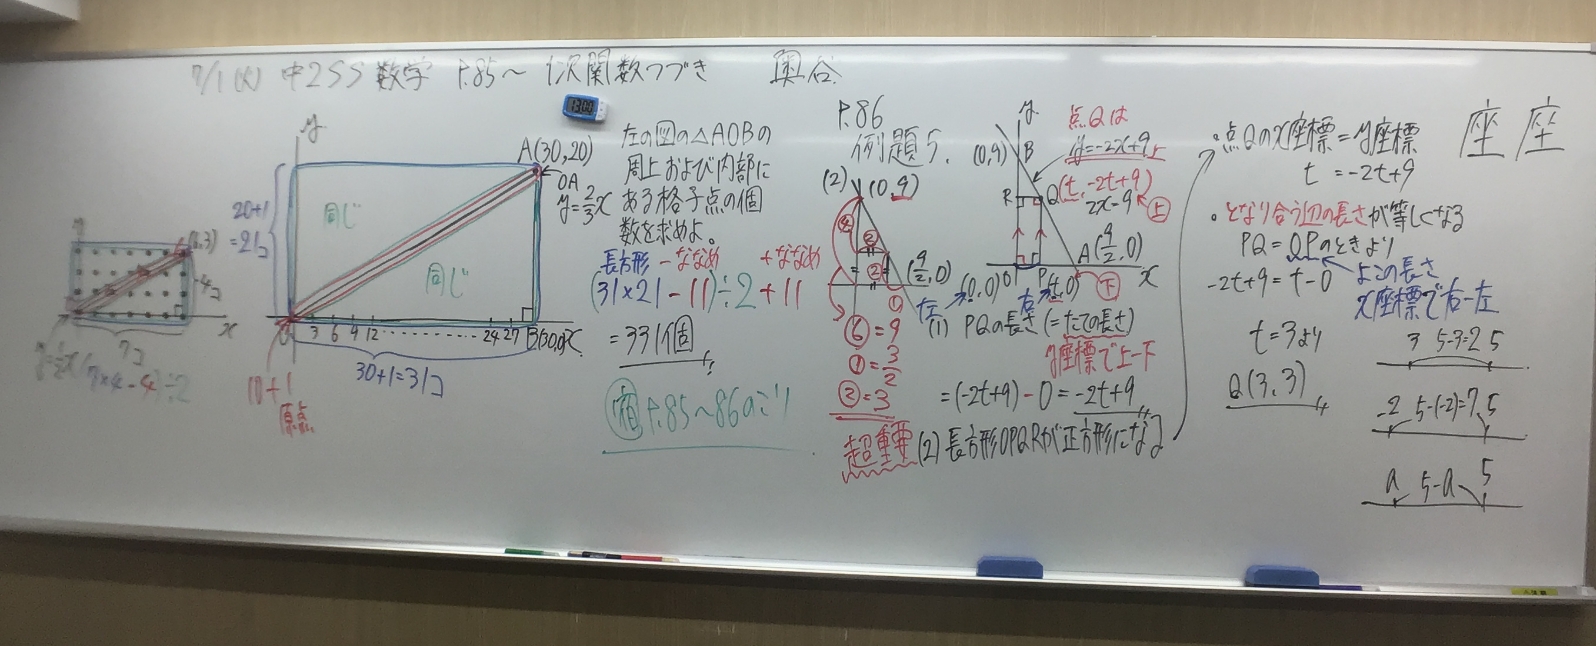 7/1(火) 中2SS 数学 P.85～ 1次関数つづき 奥谷
13:00
y
A(30,20)
OA
y=2/3x
20+1
=21コ
同じ
同じ
O 3 6 9 12 ‥‥‥‥ 24 27 B(30,0) x
30+1=31コ
10+1
原点
y
(6,3)
4コ
x
7コ
y=1/2x
(7×4-4)÷2
左の図の△AOBの
周上および内部に
ある格子点の個
数を求めよ。
長方形 -ななめ +ななめ
(31×21-11)÷2+11
=331個
宿 P.85～86のこり
P.86
例題5.
(2)
(0,9)
④
②
②
(9/2,0)
①
⑥=9
①=3/2
②=3
超重要
y
(0,9)
B
R
Q
点Qは
y=-2x+9上
(t,-2t+9)
2x-9
上
A(9/2,0)
x
(0,0) O P (t,0)
下
左
右
(1) PQの長さ(=たての長さ)
y座標で上-下
=(-2t+9)-0=-2t+9
(2)長方形OPQRが正方形になる
点Qのx座標=y座標
t=-2t+9
となり合う辺の長さが等しくなる
PQ=OPのときより
よこの長さ
-2t+9=t-0
x座標で右-左
t=3より
Q(3,3)
座 座
3 5-3=2 5
-2 5-(-2)=7 5
a 5-a 5